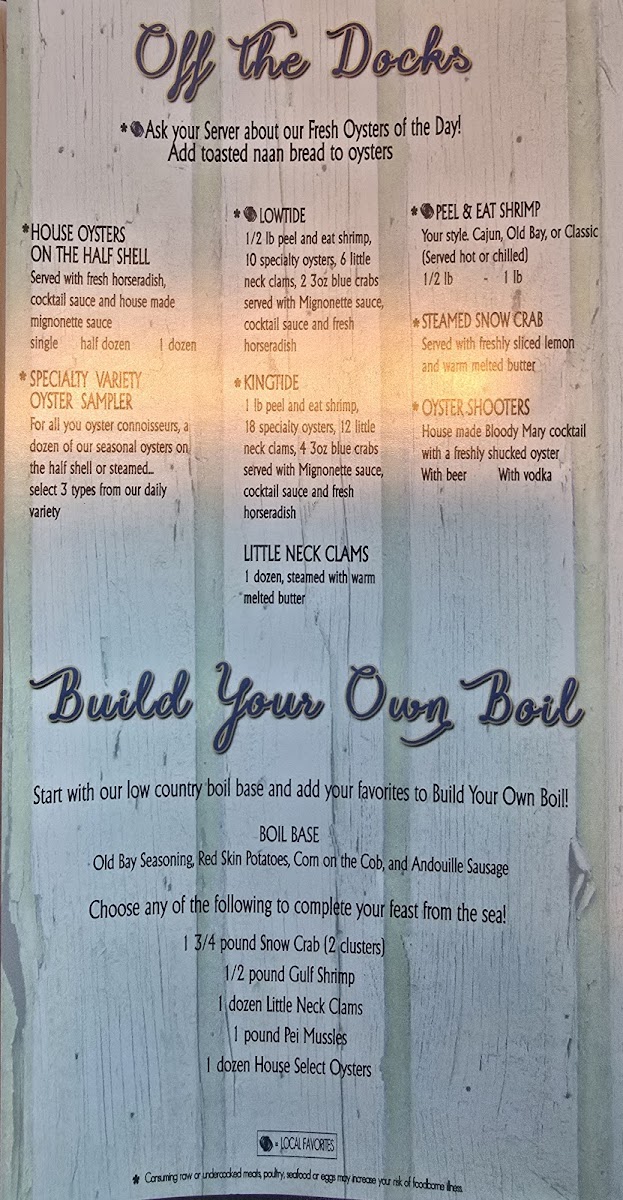 Off the Docks
* Ask your Server about our Fresh Oysters of the Day!
Add toasted naan bread to oysters
* HOUSE OYSTERS
ON THE HALF SHELL
Served with fresh horseradish,
cocktail sauce and house made
mignonette sauce
single half dozen 1 dozen
* SPECIALTY VARIETY
OYSTER SAMPLER
For all you oyster connoisseurs, a
dozen of our seasonal oysters on
the half shell or steamed...
select 3 types from our daily
variety
* LOWTIDE
1/2 lb peel and eat shrimp,
10 specialty oysters, 6 little
neck clams, 2 3oz blue crabs
served with Mignonette sauce,
cocktail sauce and fresh
horseradish
* KINGTIDE
1 lb peel and eat shrimp,
18 specialty oysters, 12 little
neck clams, 4 3oz blue crabs
served with Mignonette sauce,
cocktail sauce and fresh
horseradish
LITTLE NECK CLAMS
1 dozen, steamed with warm
melted butter
* PEEL & EAT SHRIMP
Your style. Cajun, Old Bay, or Classic
(Served hot or chilled)
1/2 lb - 1 lb
* STEAMED SNOW CRAB
Served with freshly sliced lemon
and warm melted butter
* OYSTER SHOOTERS
House made Bloody Mary cocktail
with a freshly shucked oyster
With beer With vodka
Build Your Own Boil
Start with our low country boil base and add your favorites to Build Your Own Boil!
BOIL BASE
Old Bay Seasoning, Red Skin Potatoes, Corn on the Cob, and Andouille Sausage
Choose any of the following to complete your feast from the sea!
1 3/4 pound Snow Crab (2 clusters)
1/2 pound Gulf Shrimp
1 dozen Little Neck Clams
1 pound Pei Mussles
1 dozen House Select Oysters
= LOCAL FAVORITES
* Consuming raw or undercooked meats, poultry, seafood or eggs may increase your risk of foodborne illness